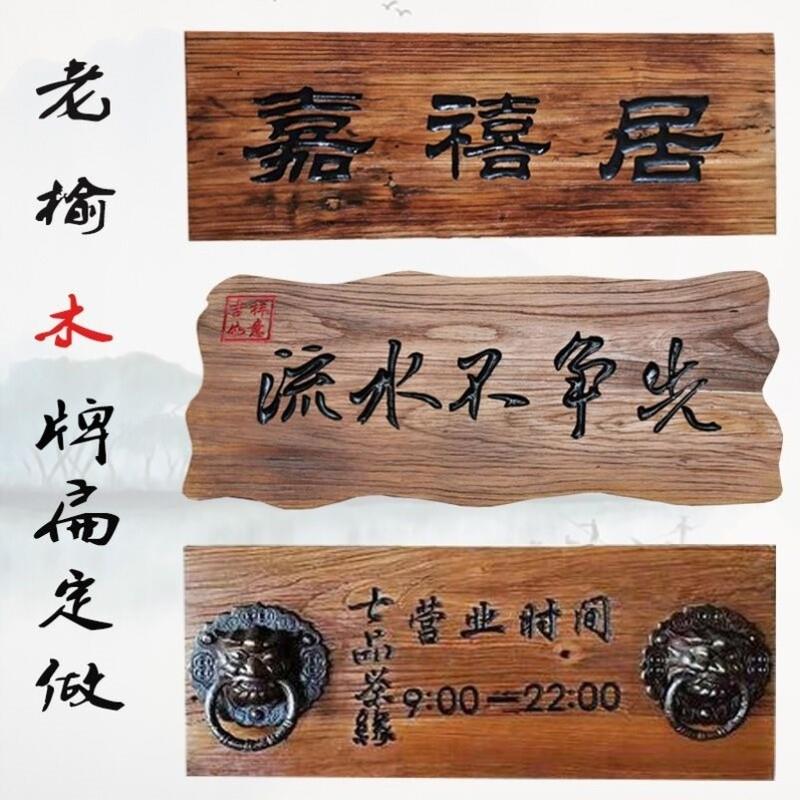 老榆木牌扁定做
嘉禧居
吉祥如意
流水不争先
七品茶緣
营业时间
9:00—22:00